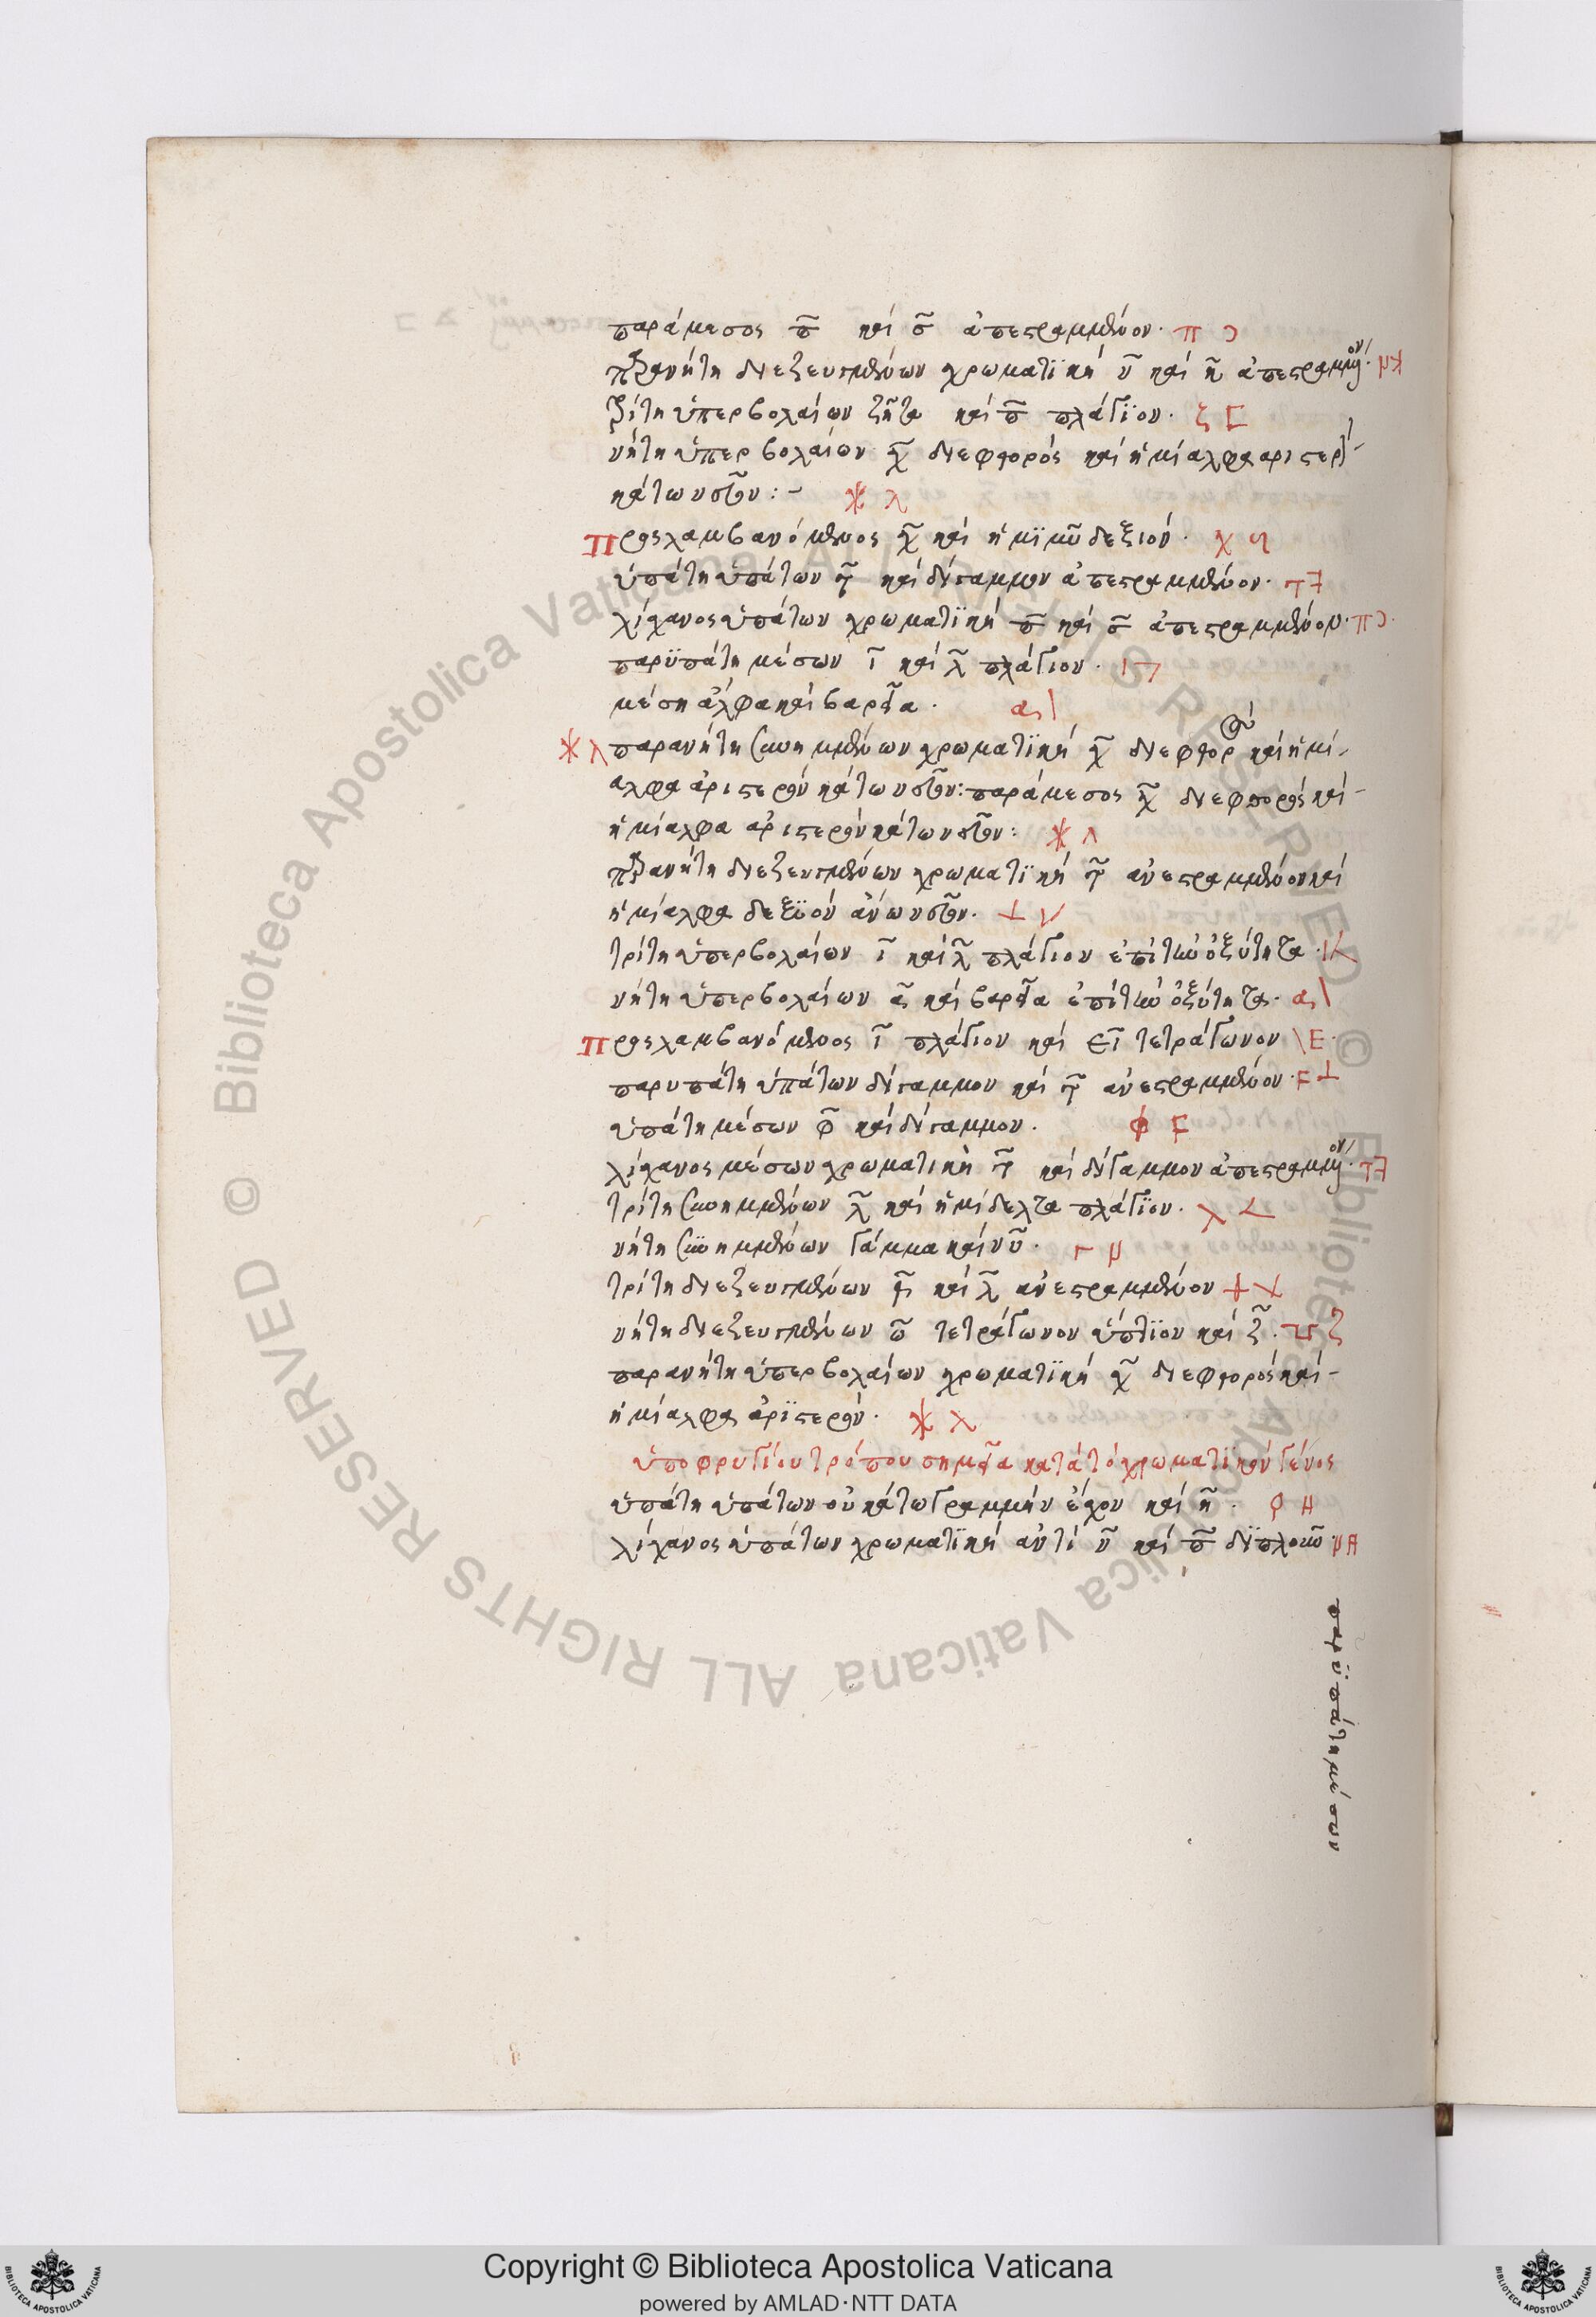 παράμεσος π̅ καὶ σ̅ ἀπεστραμμένον· π Ɔ
παρανήτη διεζευγμένων χρωματϊκή ν̅ καὶ η̅ ἀπεστραμμένον·
τρίτη ὑπερβολαίων ζῆτα καὶ π̅ πλάγϊον· ζ
νήτη ὑπερβολαίων χ̅ διεφθορός καὶ ἡμίαλφα ἀριστερὸν
κάτω νεῦον:-
Προσλαμβανόμενος χ̅ καὶ ἡμϊμυ δεξιόν·
ὑπάτη ὑπάτων τ̅ καὶ δίγαμμον ἀπεστραμμένον·
λίχανος ὑπάτων χρωματϊκή π̅ καὶ σ̅ ἀπεστραμμένον· π Ɔ
παρϋπάτη μέσων ι̅ καὶ λ̅ πλάγιον·
μέση ἄλφα καὶ βαρεῖα· α \
παρανήτη συνημμένων χρωματϊκή χ̅ διεφθορός καὶ ἡμί-
αλφα ἀριστερὸν κάτω νεῦον: παράμεσος χ̅ διεφθορός καὶ-
ἡμίαλφα ἀριστερὸν κάτω νεῦον:
παρανήτη διεζευγμένων χρωματϊκή τ̅ ἀνεστραμμένον καὶ
ἡμίαλφα δεξϊὸν ἄνω νεῦον·
τρίτη ὑπερβολαίων ι̅ καὶ λ̅ πλάγιον ἐπὶ τὴν ὀξύτητα·
νήτη ὑπερβολαίων α̅ καὶ βαρεῖα ἐπὶ τὴν ὀξύτητα· α \
Προσλαμβανόμενος ι̅ πλάγιον καὶ ει̅ τετράγωνον \ Ε·
παρυπάτη ὑπάτων δίγαμμον καὶ τ̅ ἀνεστραμμένον· F ⊥
ὑπάτη μέσων φ̅ καὶ δίγαμμον· φ F
λίχανος μέσων χρωματικὴ τ̅ καὶ δίγαμμον ἀπεστραμμένον·
τρίτη συνημμένων λ̅ καὶ ἡμίδελτα πλάγϊον· λ <
νήτη συνημμένων γάμμα καὶ νυ̅· Γ Ν
τρίτη διεζευγμένων καὶ λ̅ ἀνεστραμμένον
νήτη διεζευγμένων π̅ τετράγωνον ὕπτϊον καὶ ζ̅·
παρανήτη ὑπερβολαίων χρωματϊκή χ̅ διεφθορός καὶ-
ἡμίαλφα ἀρϊστερὸν·
ὑποφρυγίου τρόπου σημεῖα κατὰ τὸ χρωματϊκὸν γένος
ὑπάτη ὑπάτων οὐ κάτω γραμμὴν ἔχον καὶ η̅· Η
λίχανος ὑπάτων χρωματϊκή ἀντὶ ν̅ καὶ π̅ διπλοῦν·
παρυπάτη μέσων
Copyright © Biblioteca Apostolica Vaticana
powered by AMLAD·NTT DATA
© Biblioteca Apostolica Vaticana ALL RIGHTS RESERVED
© Biblioteca Apostolica Vaticana ALL RIGHTS RESERVED